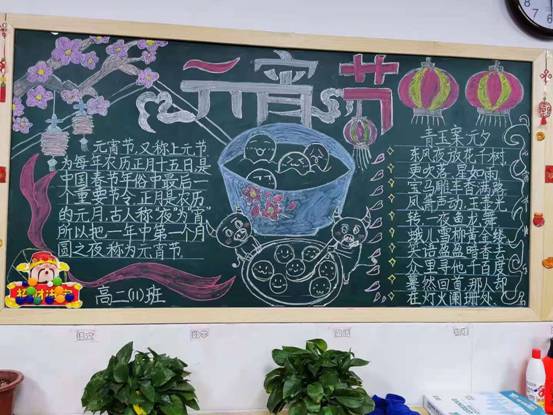 元宵节
元宵节,又称上元节
为每年农历正月十五日是
中国春节年俗中最后一
个重要节令,正月是农历
的元月,古人称“夜”为“宵”
所以把一年中第一个月
圆之夜称为元宵节.
高二(11)班
青玉案·元夕
东风夜放花千树
更吹落,星如雨
宝马雕车香满路
凤箫声动,玉壶光
转,一夜鱼龙舞
蛾儿雪柳黄金缕
笑语盈盈暗香去
众里寻他千百度
蓦然回首,那人却
在灯火阑珊处.